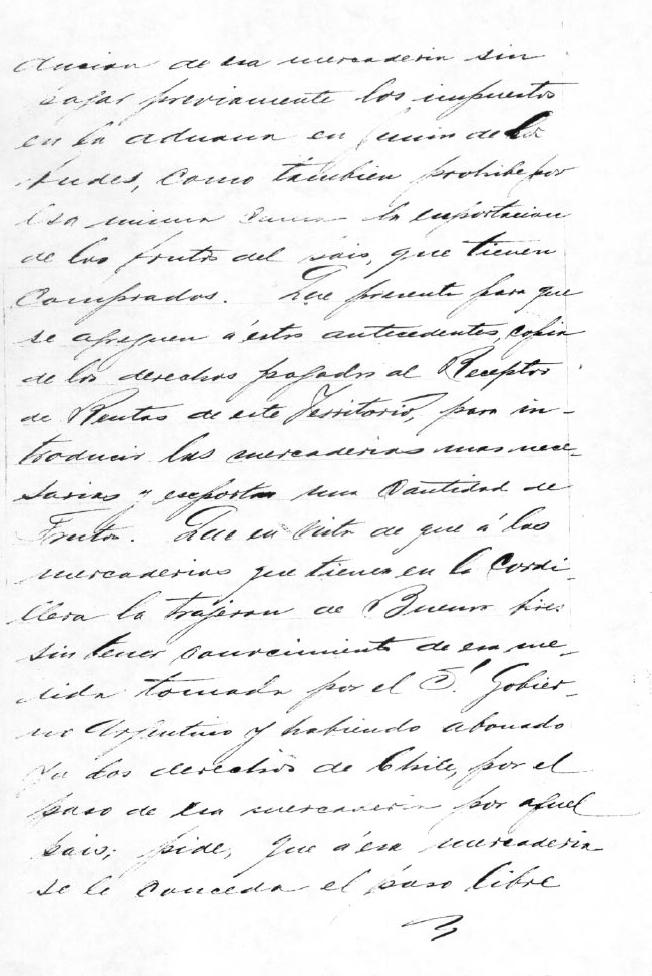 duccion de esa mercaderia sin
pagar previamente los impuestos
en la aduana en Junin de los
Andes, como también prohibe por
esa misma causa la esportacion
de los frutos del pais, que tienen
comprados. Que presenta para que
se agreguen á estos antecedentes, copia
de los derechos pagados al Receptor
de Rentas de este Territorio, para in-
troducir las mercaderias mas nece-
sarias y esportar una cantidad de
frutos. Que en vista de que á las
mercaderias que tienen en la Cordi-
llera la trajeron de Buenos Aires
sin tener conocimiento de esa me-
dida tomada por el S.r Gobier-
no Argentino y habiendo abonado
ya los derechos de Chile, por el
paso de esa mercaderia por aquel
pais; pide, que á esa mercaderia
se le conceda el paso libre